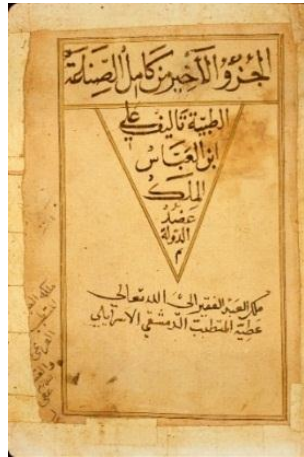 الجزؤ الاخير من كامل الصناعة
الطبية تاليف علي
ابن العباس
الملك
عضد
الدولة
م
ملك العبد الفقير الى الله تعالى
عطية المتطبب الدمشقي الاسرايلي